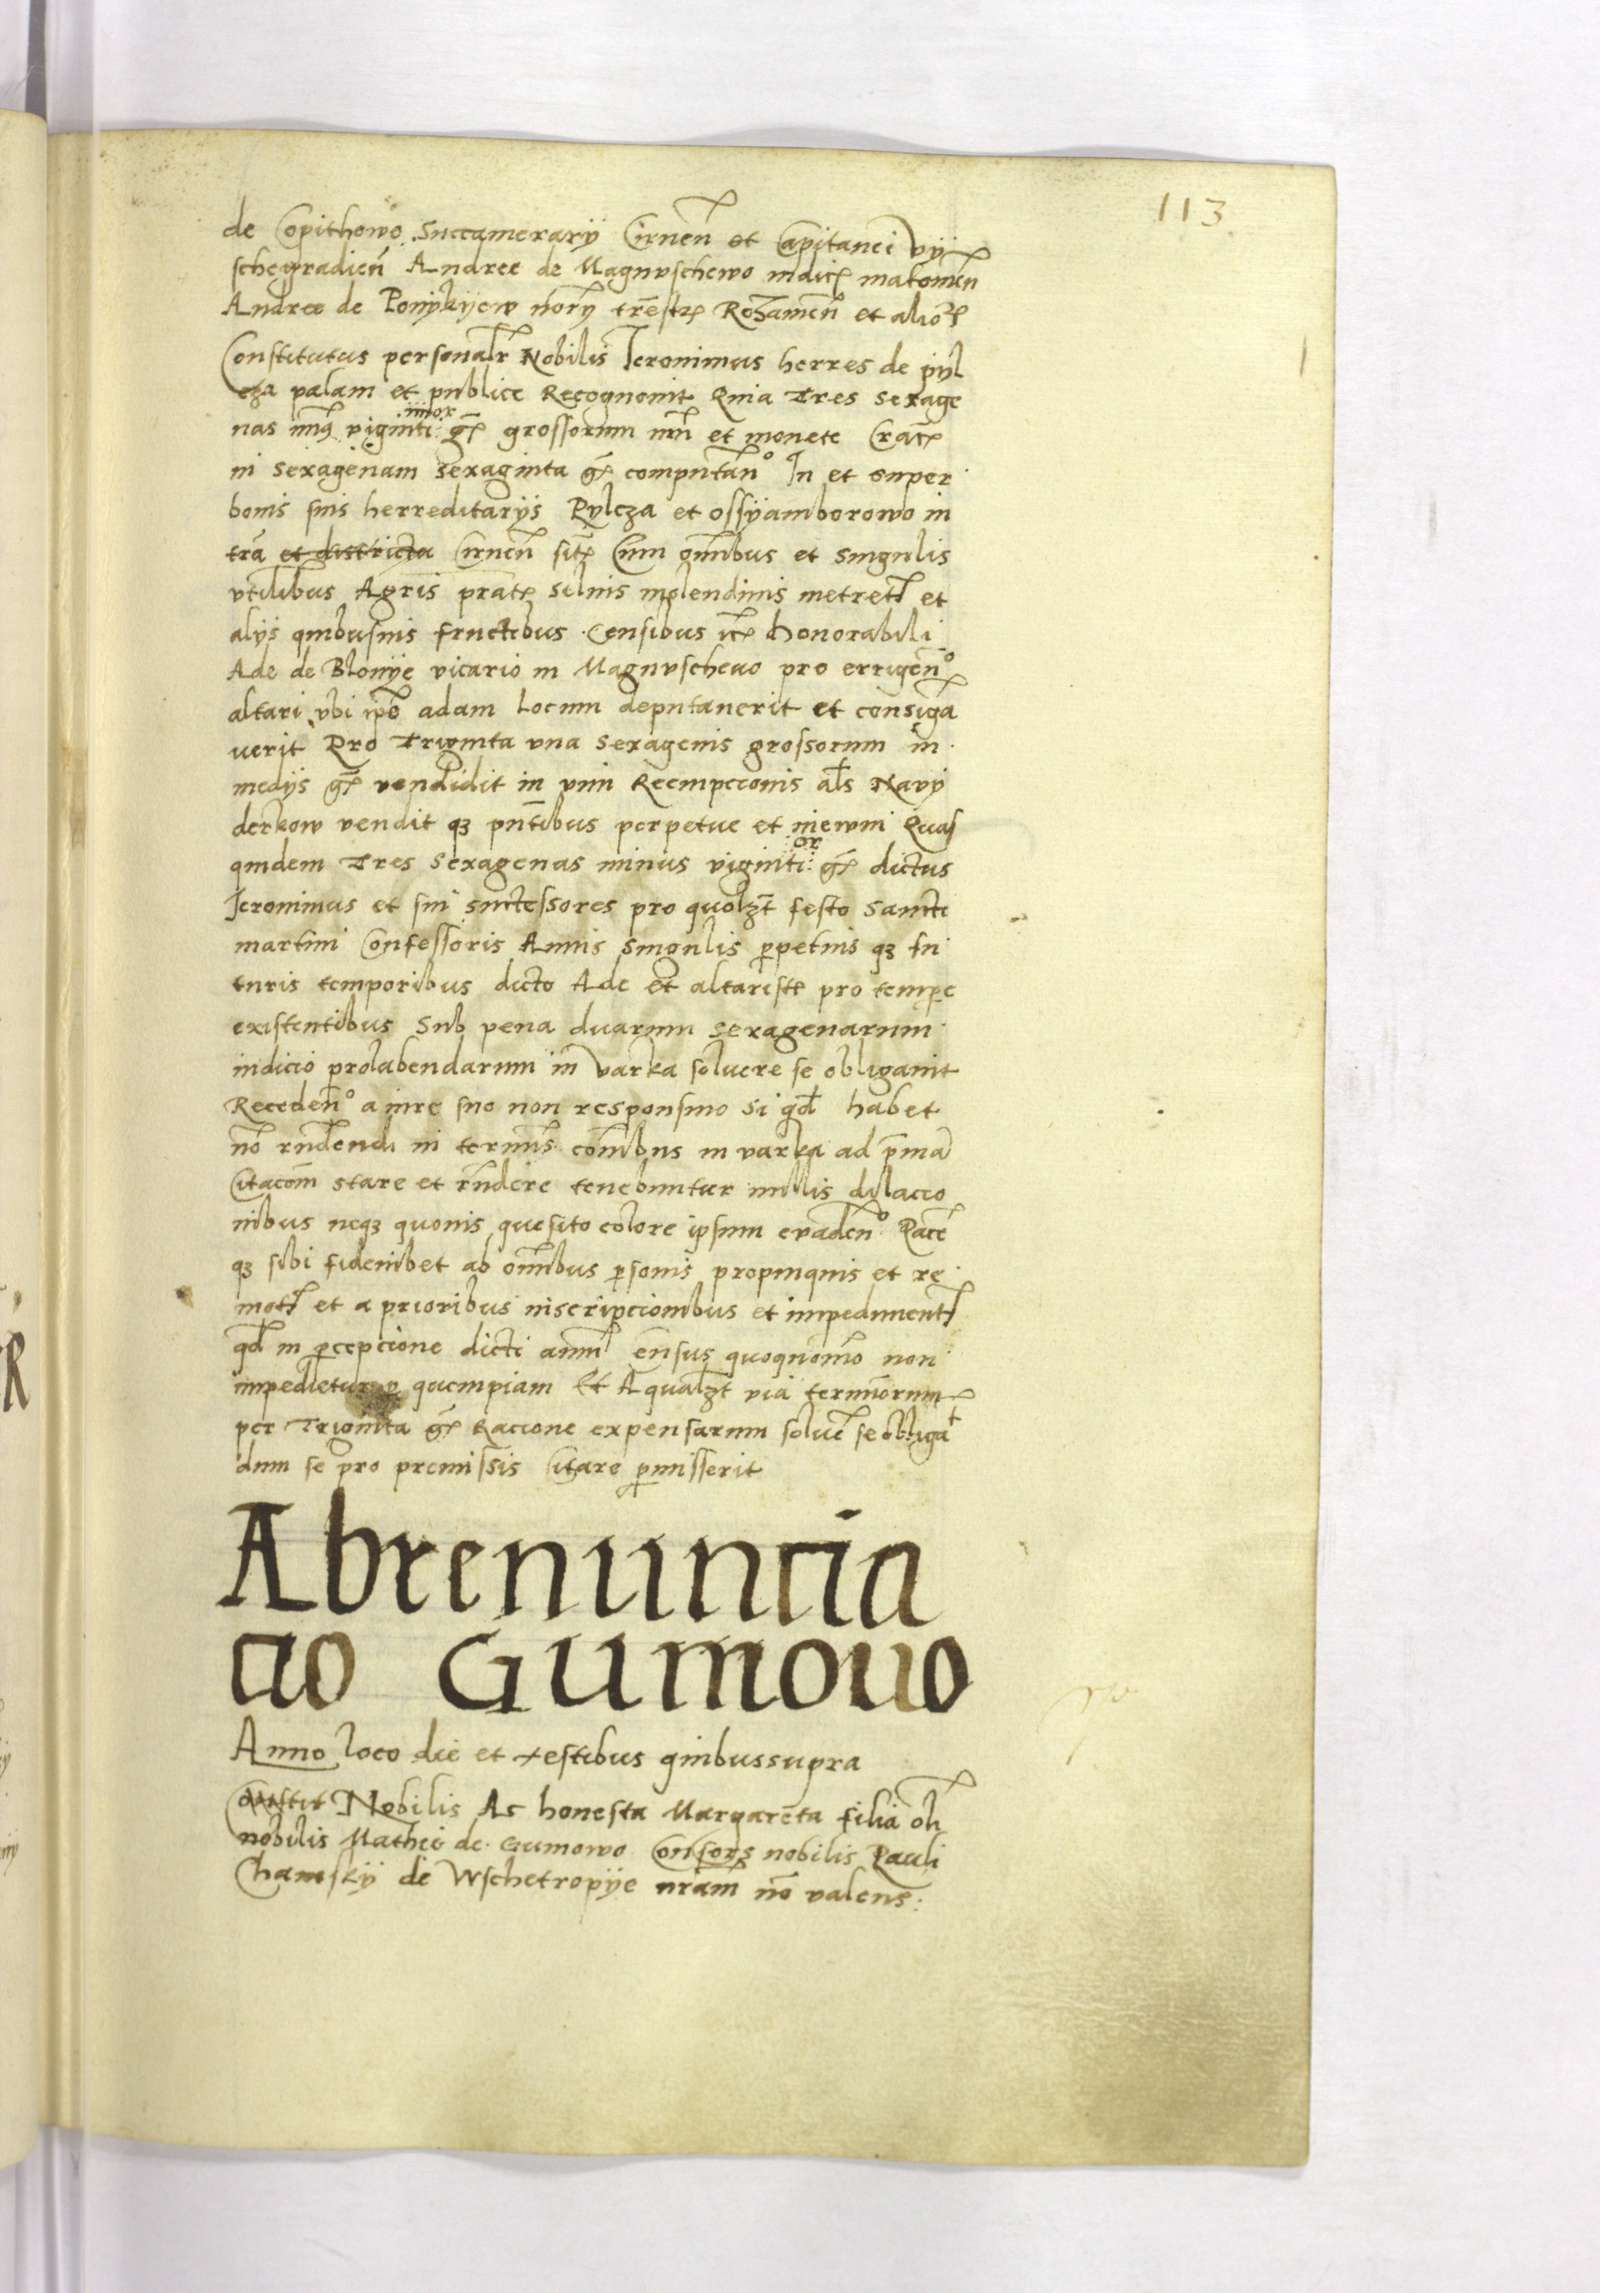 113
de Copithowo Succamerarÿ Cirnen̄ et Capitanei vÿ
schegradien̄ Andree de Magnuschewo iudic̨ makovien̄
Andree de Ponÿkÿew nōrÿ trēstr̨ Roʒamen̄ et alioꝝ
Constitutus personalr̄ Nobilis Jeronimus herres de pÿl
cza palam et publice Recognouit Quia Tres sexage
nas min⁹ viginti iiiior gr̄ grossorum nrī et monete Crat̨
in sexagenam sexaginta gr̄ computan̄º In et super
bonis suis herreditarÿs Pylcza et ossÿamborowo in
tra et districta Cirnen̄ sit̨ Cum om̄ibus et singulis
vtilibus Agris prat̨ siluis molendinis metret̨ et
alÿs quibusuis fructibus Censibus it̨ honorabili
Ade de Blonÿe vicario in Magnuscheuo pro errigen̄º
altari vbi ip̄e adam locum deputauerit et consiga
uerit Pro Triginta una sexagenis grossorum in
medÿs gr̄ vendidit in vim Reempcionis al̄s Navÿ
derkow vendit qꝫ pn̄tibus perpetue et in ewm Quas
quidem Tres sexagenas minus viginti iiiior gr̄ dictus
Jeronimus et sui suctessores pro quolꝫt festo sancti
martini Confessoris Annis singulis ꝑpetuis qꝫ fu
turis temporibus dicto Ade et altarist̨ pro tempe
existentibus Sub pena duarum sexagenarum
iudicio prolabendarum in varka soluere se obligauit
Receden̄º a iure suo non responsiuo si qd̄ habet
nō rn̄dendi in termīs com̄ibus in varka ad p̄ma
Citacom̄ stare et rn̄dere tenebuntur nullis dilacio
nibus neqꝫ quouis quesito colore ipsum evaden̄º Pacē
qꝫ sibi fideiubet ab om̄ibus ꝑsonis propinquis et re
mot̨ et a prioribus inscripcionibus et impediment̨
qd̄ in ꝑcepcione dicti annui cēnsus quoquomō non
impedietur ꝑ quempiam Et A qualꝫt via terminorum
per Triginta gr̄ Racione expensarum soluē se obligat
dum se pro premissis Citare ꝑmisserit
Abrenuncia
cio Gumowo
Anno loco die et testibus quibussupra
Constit Nobilis Ac honesta Margareta filia oli
nobilis Mathie de Gumowo Consors nobilis Pauli
Chamskÿ de Wschetropÿe uram nō valens